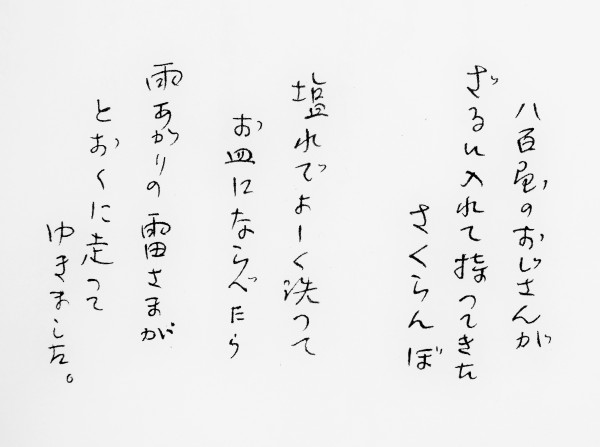 八百屋のおじさんが
ざるに入れて持ってきた
さくらんぼ
塩れでよーく洗って
お皿にならべたら
雨あがりの雷さまが
とおくに走って
ゆきました。